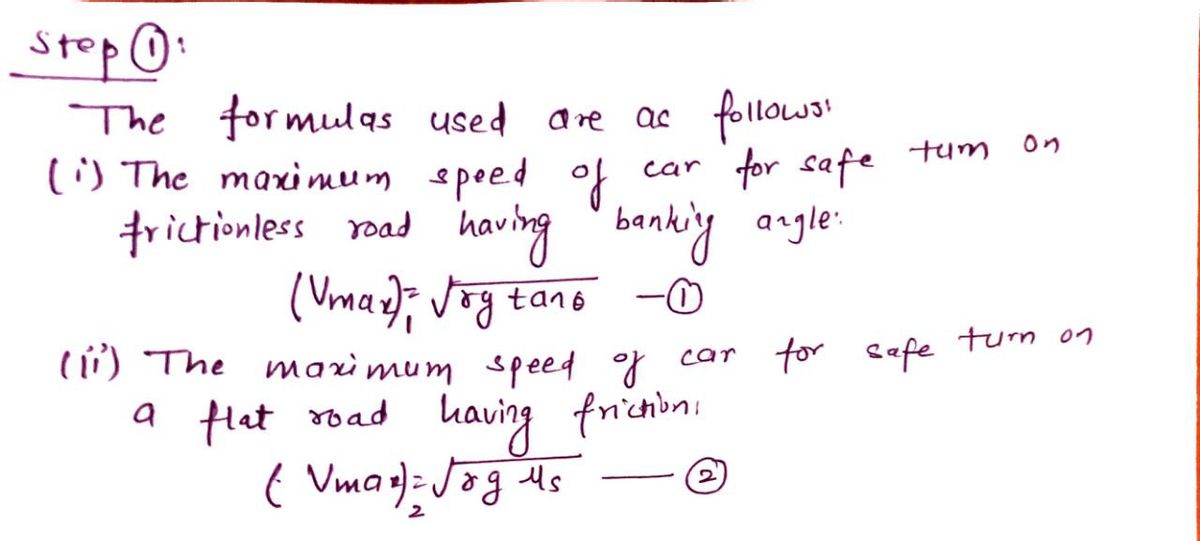 Step ①:
The formulas used are as follows:
(i) The maximum speed of car for safe turn on
frictionless road having banking angle:
(Vmax)₁ = √rg tanθ —①
(ii) The maximum speed of car for safe turn on
a flat road having friction:
(Vmax)₂ = √rg μs —②